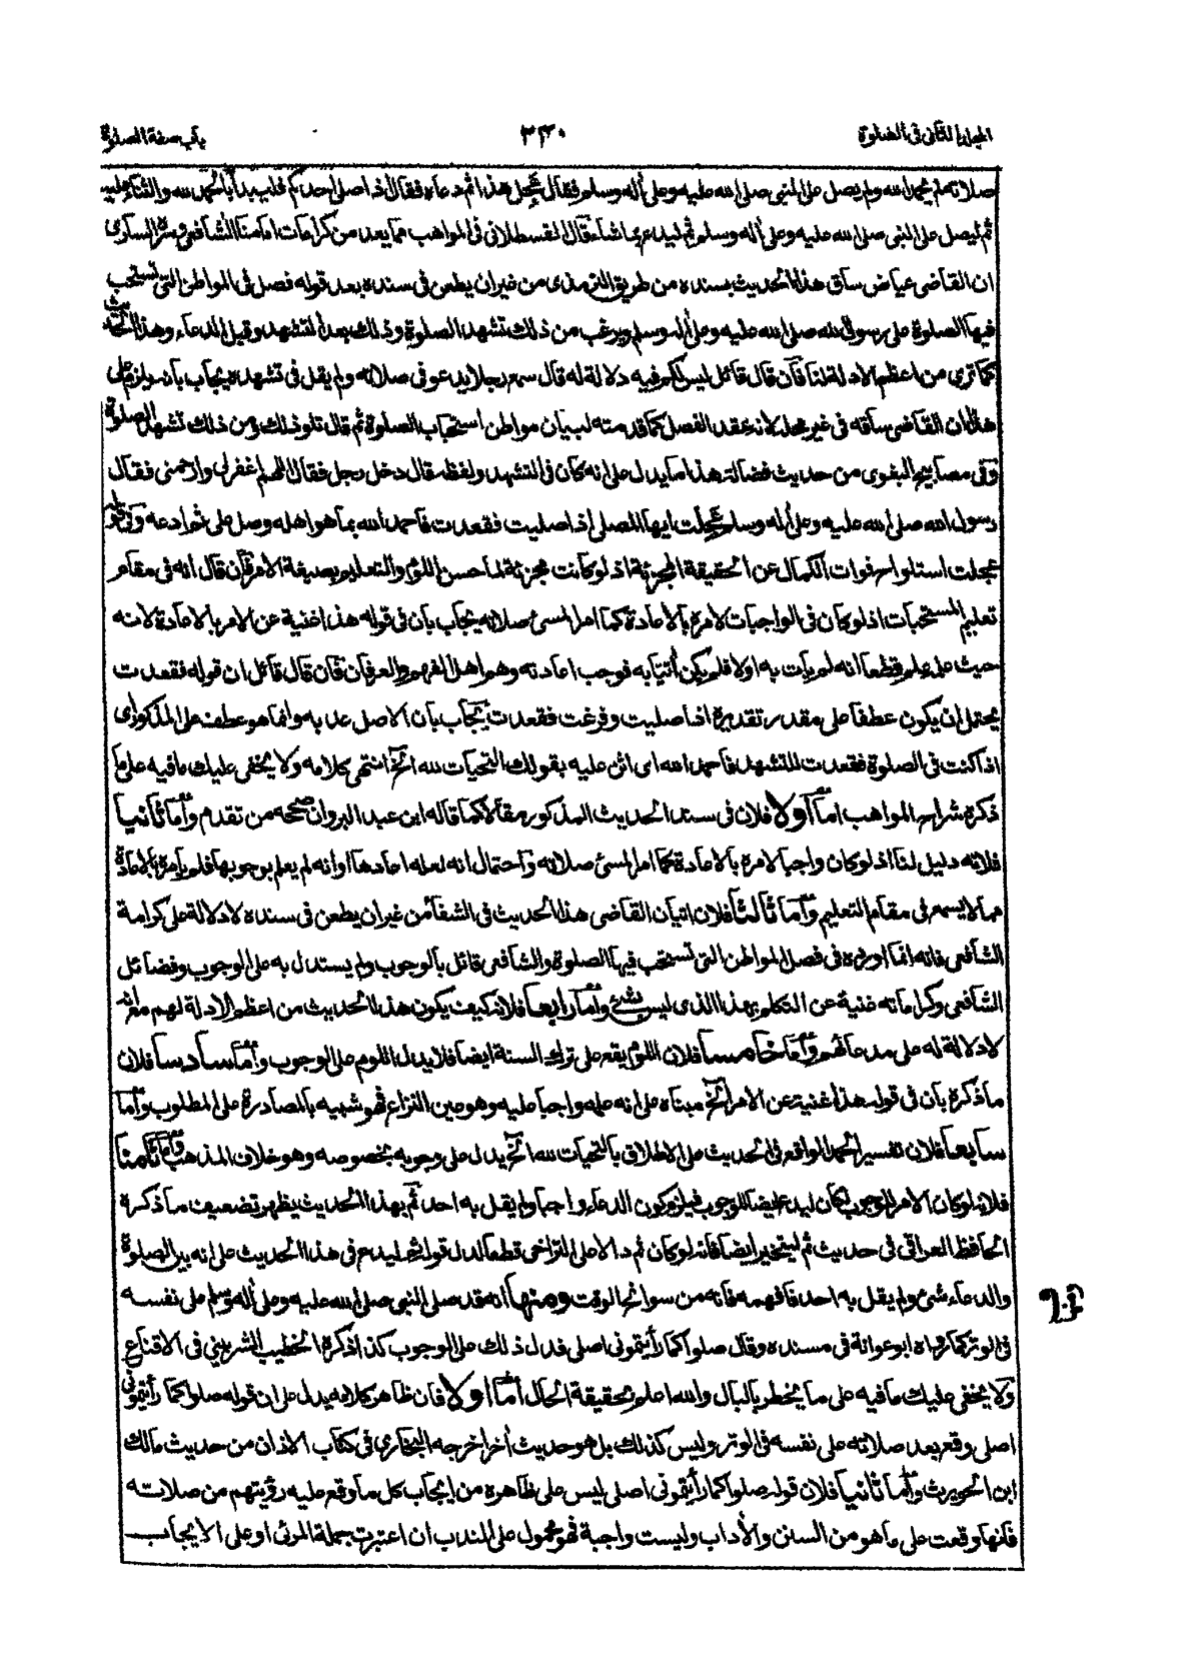 المجلد الثانى فى الصلوة
٢٣٠
باب صفة الصلوة
صلاته لم يحمد الله ولم يصل على النبى صلى الله عليه وعلى أله وسلم فقال عجل هذا ثم دعاه فقال اذا صلى احدكم فليبدأ بالحمد لله والثناء عليه
ثم ليصل على النبى صلى الله عليه وعلى أله وسلم ثم ليدع بما شاء قال القسطلانى فى المواهب مما يعد من كرامات امامنا الشافعى وسره السارى
ان القاضى عياض ساق هذا الحديث بسنده من طريق الترمذى من غير ان يطعن فى سنده بعد قوله فصل فى المواطن التى تستحب
فيها الصلوة على رسول الله صلى الله عليه وعلى أله وسلم ويرغب من ذلك تشهد الصلوة وذلك بعد التشهد وقبل الدعاء وهذا الحديث
كما ترى من اعظم الادلة لنا فأن قال قائل ليس لكم فيه دلالة له قال سمع رجلا يدعو فى صلاته ولم يقل فى تشهده يجاب بانه يلزم على
هذا ان القاضى ساقه فى غير محله لانه عقد الفصل كما قدمته لبيان مواطن استحباب الصلوة ثم قال تلو ذلك ومن ذلك تشهد الصلوة
وفى مصابيح البغوى من حديث فضالة هذا ما يدل على انه كان فى التشهد ولفظه قال دخل رجل فقال اللهم اغفرلى وارحمنى فقال
رسول الله صلى الله عليه وعلى أله وسلم عجلت ايها المصلى اذا صليت فقعدت فاحمد الله بما هو اهله وصل على ثم ادعه وفى قوله
عجلت استلواح فوات الكمال عن الحقيقة المجزية اذ لو كانت مجزية لما حسن اللوم والتعليم بصيغة الامر فأن قال انه فى مقام
تعليم المستحبات اذ لو كان فى الواجبات لامره بالاعادة كما امر المسئ صلاته يجاب بأن فى قوله هذا غنية عن الامر بالاعادة لانه
حيث علمه علم قطعا انه لم يات به اولا فلم يكن أتيا به فوجب اعادته وهم اهل الفهم والعرفان فأن قال قائل ان قوله فقعدت
يحتمل ان يكون عطفا على مقدر تقديره اذا صليت وفرغت فقعدت يجاب بأن الاصل عدمه وانما هو عطف على المذكور اى
اذا كنت فى الصلوة فقعدت للتشهد فأحمد الله اى اثن عليه بقولك التحيات لله الخ انتهى كلامه ولا يخفى عليك ما فيه على ما
ذكره شراح المواهب اما اولا فلان فى سند الحديث المذكور مقالا كما قاله ابن عبد البر وان صححه من تقدم واما ثانيا
فلانه دليل لنا اذ لو كان واجبا لامره بالاعادة كما امر المسئ صلاته واحتمال انه لعله اعادها او انه لم يعلم بوجوبها فلم يأمره بالاعادة
مما لا يسمع فى مقام التعليم واما ثالثا فلان اتيان القاضى هذا الحديث فى الشفا من غير ان يطعن فى سنده لا دلالة على كرامة
الشافعى فانه انما اورده فى فصل المواطن التى تستحب فيها الصلوة والشافعى قائل بالوجوب ولم يستدل به على الوجوب وفضائل
الشافعى وكراماته غنية عن التكلم بهذا الذى ليس بشئ واما رابعا فلانه كيف يكون هذا الحديث من اعظم الادلة لهم مع انه
لا دلالة له على مدعاهم واما خامسا فلان اللوم يقع على ترك السنة ايضا فلا يدل اللوم على الوجوب واما سادسا فلان
ما ذكره بأن فى قوله هذا غنية عن الامر الخ مبناه على انه علمه واجبا عليه وهو عين النزاع فهو شبيه بالمصادرة على المطلوب واما
سابعا فلان تفسير الحمد الواقع فى الحديث على الاطلاق بالتحيات لله الخ يدل على وجوبه بخصوصه وهو خلاف المذهب واما ثامنا
فلانه لو كان الامر للوجوب لكان ليدع ايضا للوجوب فيلزم كون الدعاء واجبا ولم يقل به احد ثم بهذا الحديث يظهر تضعيف ما ذكره
الحافظ العراقى فى حديث ثم ليتخير ايضا فانه لو كان ثم دالا على التراخى قطعا لدل قوله ثم ليدع فى هذا الحديث على انه بين الصلوة
والدعاء شئ ولم يقل به احد فأفهمه فأنه من سوانح الوقت ومنها انه قد صلى النبى صلى الله عليه وعلى أله وسلم على نفسه
فى الوتر كما رواه ابو عوانة فى مسنده وقال صلوا كما رأيتمونى اصلى فدل ذلك على الوجوب كذا ذكره الخطيب الشربينى فى الاقناع
ولا يخفى عليك ما فيه على ما يخطر بالبال والله اعلم بحقيقة الحال أما اولا فان ظاهر كلامه يدل على ان قوله صلوا كما رأيتمونى
اصلى وقع بعد صلاته على نفسه فى الوتر وليس كذلك بل هو حديث أخر اخرجه البخارى فى كتاب الاذان من حديث مالك
ابن الحويرث وأما ثانيا فلان قوله صلوا كما رأيتمونى اصلى ليس على ظاهره من ايجاب كل ما وقع عليه رؤيتهم من صلاته
فأنها وقعت على ما هو من السنن والأداب وليست واجبة فهو محمول على الندب ان اعتبرت جملة المرئى او على الايجاب